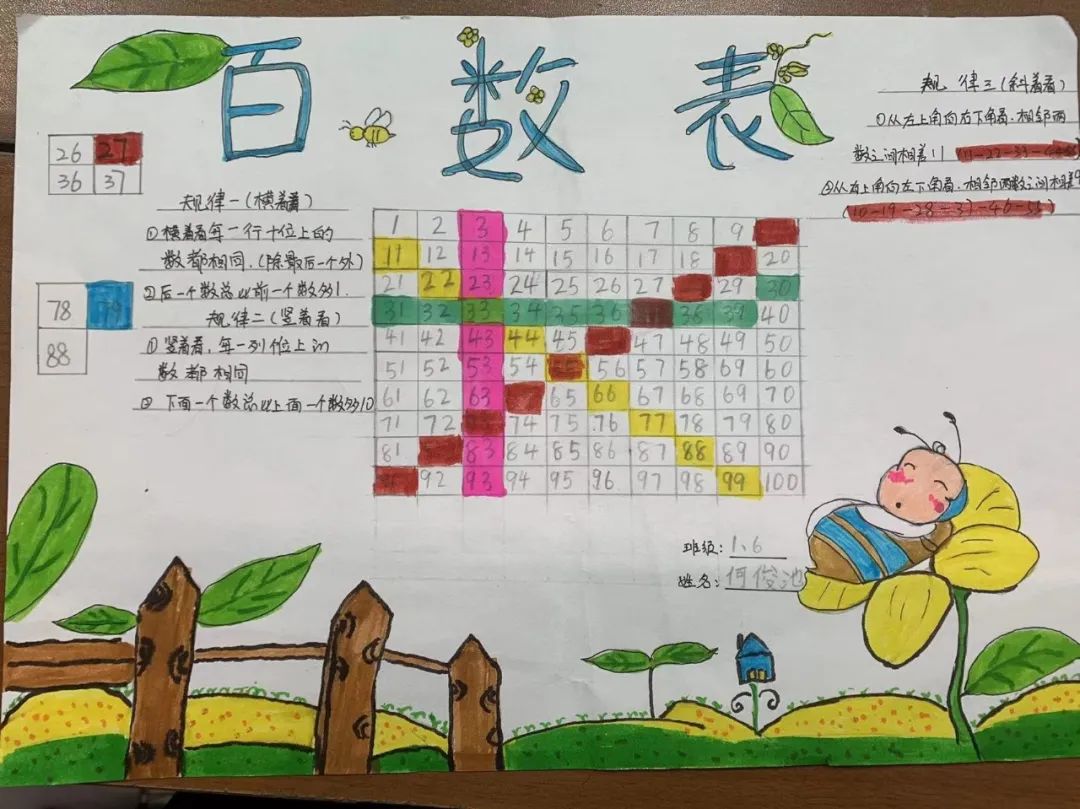 百数表
26 27
36 37
规律一(横着看)
①横着看每一行十位上的
数都相同.(除最后一个外)
②后一个数总比前一个数多1.
78 79
88
规律二(竖着看)
①竖着看,每一列位上的
数都相同
② 下面一个数总比上面一个数多10
规律三(斜着看)
①从左上角向右下角看.相邻两
数之间相差11 (11-22-33-
②从右上角向左下角看.相邻两数之间相差9
(10-19-28-37-46-55)
1 2 3 4 5 6 7 8 9
11 12 13 14 15 16 17 18 20
21 22 23 24 25 26 27 29 30
31 32 33 34 35 36 38 39 40
41 42 43 44 45 47 48 49 50
51 52 53 54 56 57 58 69 60
61 62 63 65 66 67 68 69 70
71 72 74 75 76 77 78 79 80
81 83 84 85 86 87 88 89 90
92 93 94 95 96 97 98 99 100
班级: 1、6
姓名: 何俊池